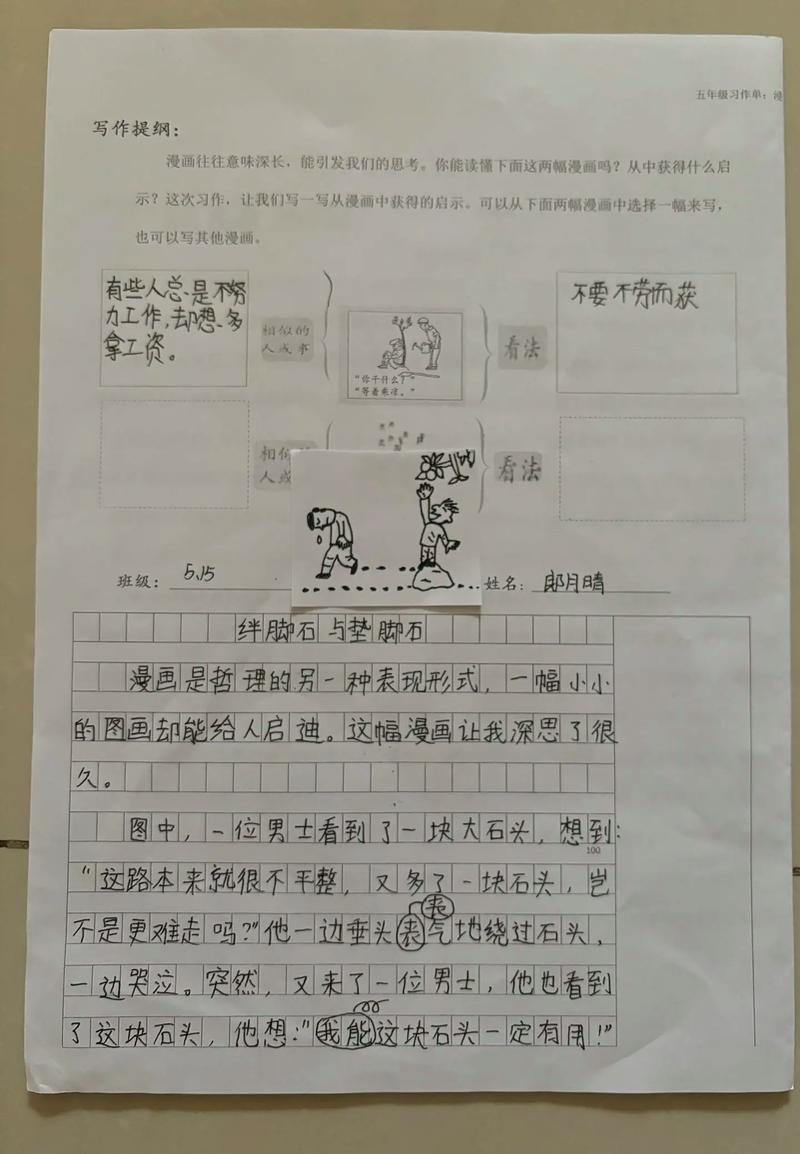 五年级习作单：漫
写作提纲：
漫画往往意味深长，能引发我们的思考。你能读懂下面这两幅漫画吗？从中获得什么启
示？这次习作，让我们写一写从漫画中获得的启示。可以从下面两幅漫画中选择一幅来写，
也可以写其他漫画。
有些人总是不努
力工作，却想多
拿工资。
相似的
人或事
“你干什么？”
“等着乘凉。”
看法
不要不劳而获
相似
人或
看法
班级：5.15
姓名：郎月晴
绊脚石与垫脚石
漫画是哲理的另一种表现形式，一幅小小
的图画却能给人启迪。这幅漫画让我深思了很
久。
图中，一位男士看到了一块大石头，想到：
100
“这路本来就很不平整，又多了一块石头，岂
不是更难走吗？”他一边垂头丧气地绕过石头，
一边哭泣。突然，又来了一位男士，他也看到
了这块石头，他想：“我能这块石头一定有用！”